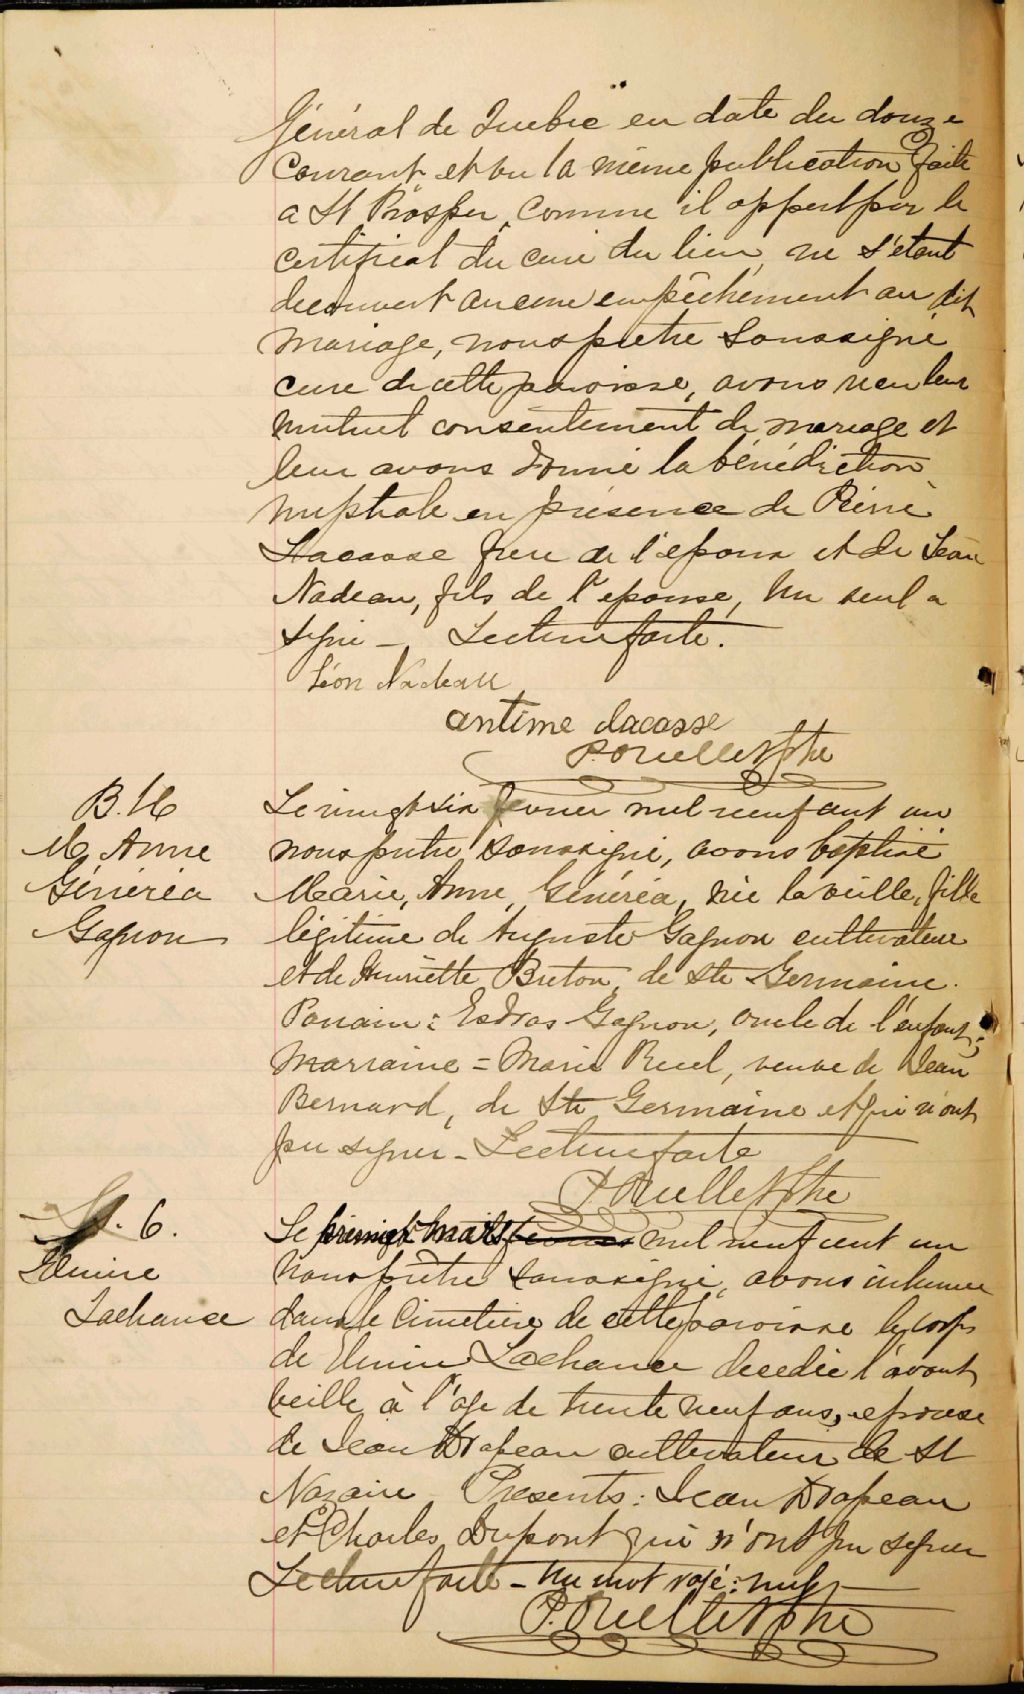 Général de Quebec en date du douze
Courant et vu la même publication faite
a St Prosper, comme il appert par le
certificat du curé du lieu, ne s'étant
decouvert aucune empêchement au dit
mariage, nous prêtre soussigné
curé de cette paroisse, avons reçu leur
mutuel consentement de mariage et
leur avons donné la bénédiction
nuptiale en présence de Pierre
Lacasse frère de l'epoux et de Léon
Nadeau, fils de l'epouse, Un seul a
signé - Lecture faite.
Léon Nadeau
antime Lacasse
P. Ouellet Ptre
B. 16
M. Anne
Généréa
Gagnon
Le vingt six fevrier mil neuf cent un
nous prêtre soussigné, avons baptisé
Marie, Anne, Généréa, née la veille, fille
légitime de Auguste Gagnon cultivateur
et de Henriette Breton, de Ste Germaine.
Parrain: Esdras Gagnon, oncle de l'enfant;
Marraine = Marie Ruel, veuve de Jean
Bernard, de Ste Germaine et qui n'ont
pu signer - Lecture faite
P. Ouellet Ptre
S. 6.
Elmire
Lachance
Le premier Mars mil neuf cent un
Nous prêtre soussigné, avons inhumé
dans le Cimetière de cette paroisse le corps
de Elmire Lachance decedée l'avant
veille à l'age de trente neuf ans, epouse
de Jean Drapeau cultivateur de St
Nazaire - Presents: Jean Drapeau
et Charles Dupont qui n'ont pu signer
Lecture faite - Un mot rayé: nul
P. Ouellet Ptre